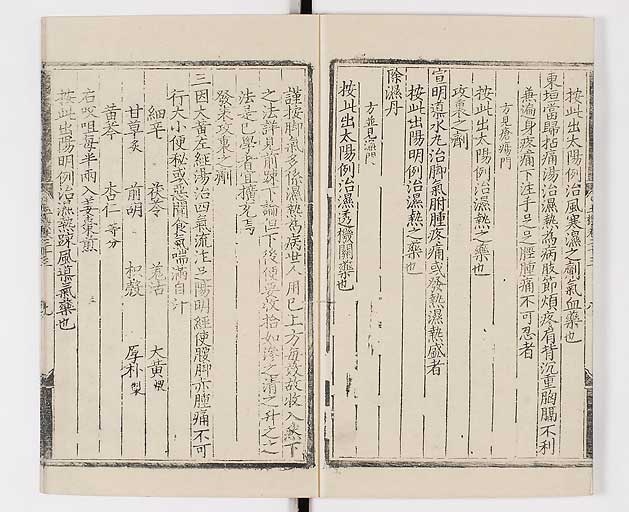 按此出太陽例治風寒濕之劑氣血藥也
東垣當歸拈痛湯治濕熱為病肢節煩疼肩背沉重胸膈不利
兼遍身疼痛下注手足足脛腫痛不可忍者
方見瘡瘍門
按此出太陽例治濕熱之藥也
攻裏之劑
宣明導水丸治脚氣胕腫疼痛或發熱濕熱盛者
按此出陽明例治濕熱之藥也
除濕丹
方並見濕門
按此出太陽例治濕透機關藥也
謹按脚氣多係濕熱為病世人用已上方每
之法詳見前疎下論但下後便
法是已學者宜擴充焉
發表攻裏之劑
三因大黃左經湯治四氣流注足陽明經使腰脚亦腫痛不可
行大小便秘或惡聞食氣喘滿自汗
細辛 茯苓 羌活 大黃煨
甘草炙 前胡 枳殼 厚朴製
黃芩 杏仁等分
右㕮咀每半兩入姜棗煎
按此出陽明例治濕熱疎風導氣藥也